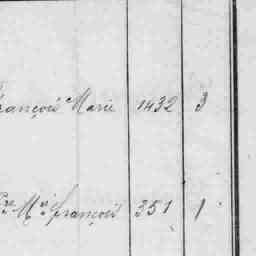 François Marie 1432 3
Pre Mie François 351 1